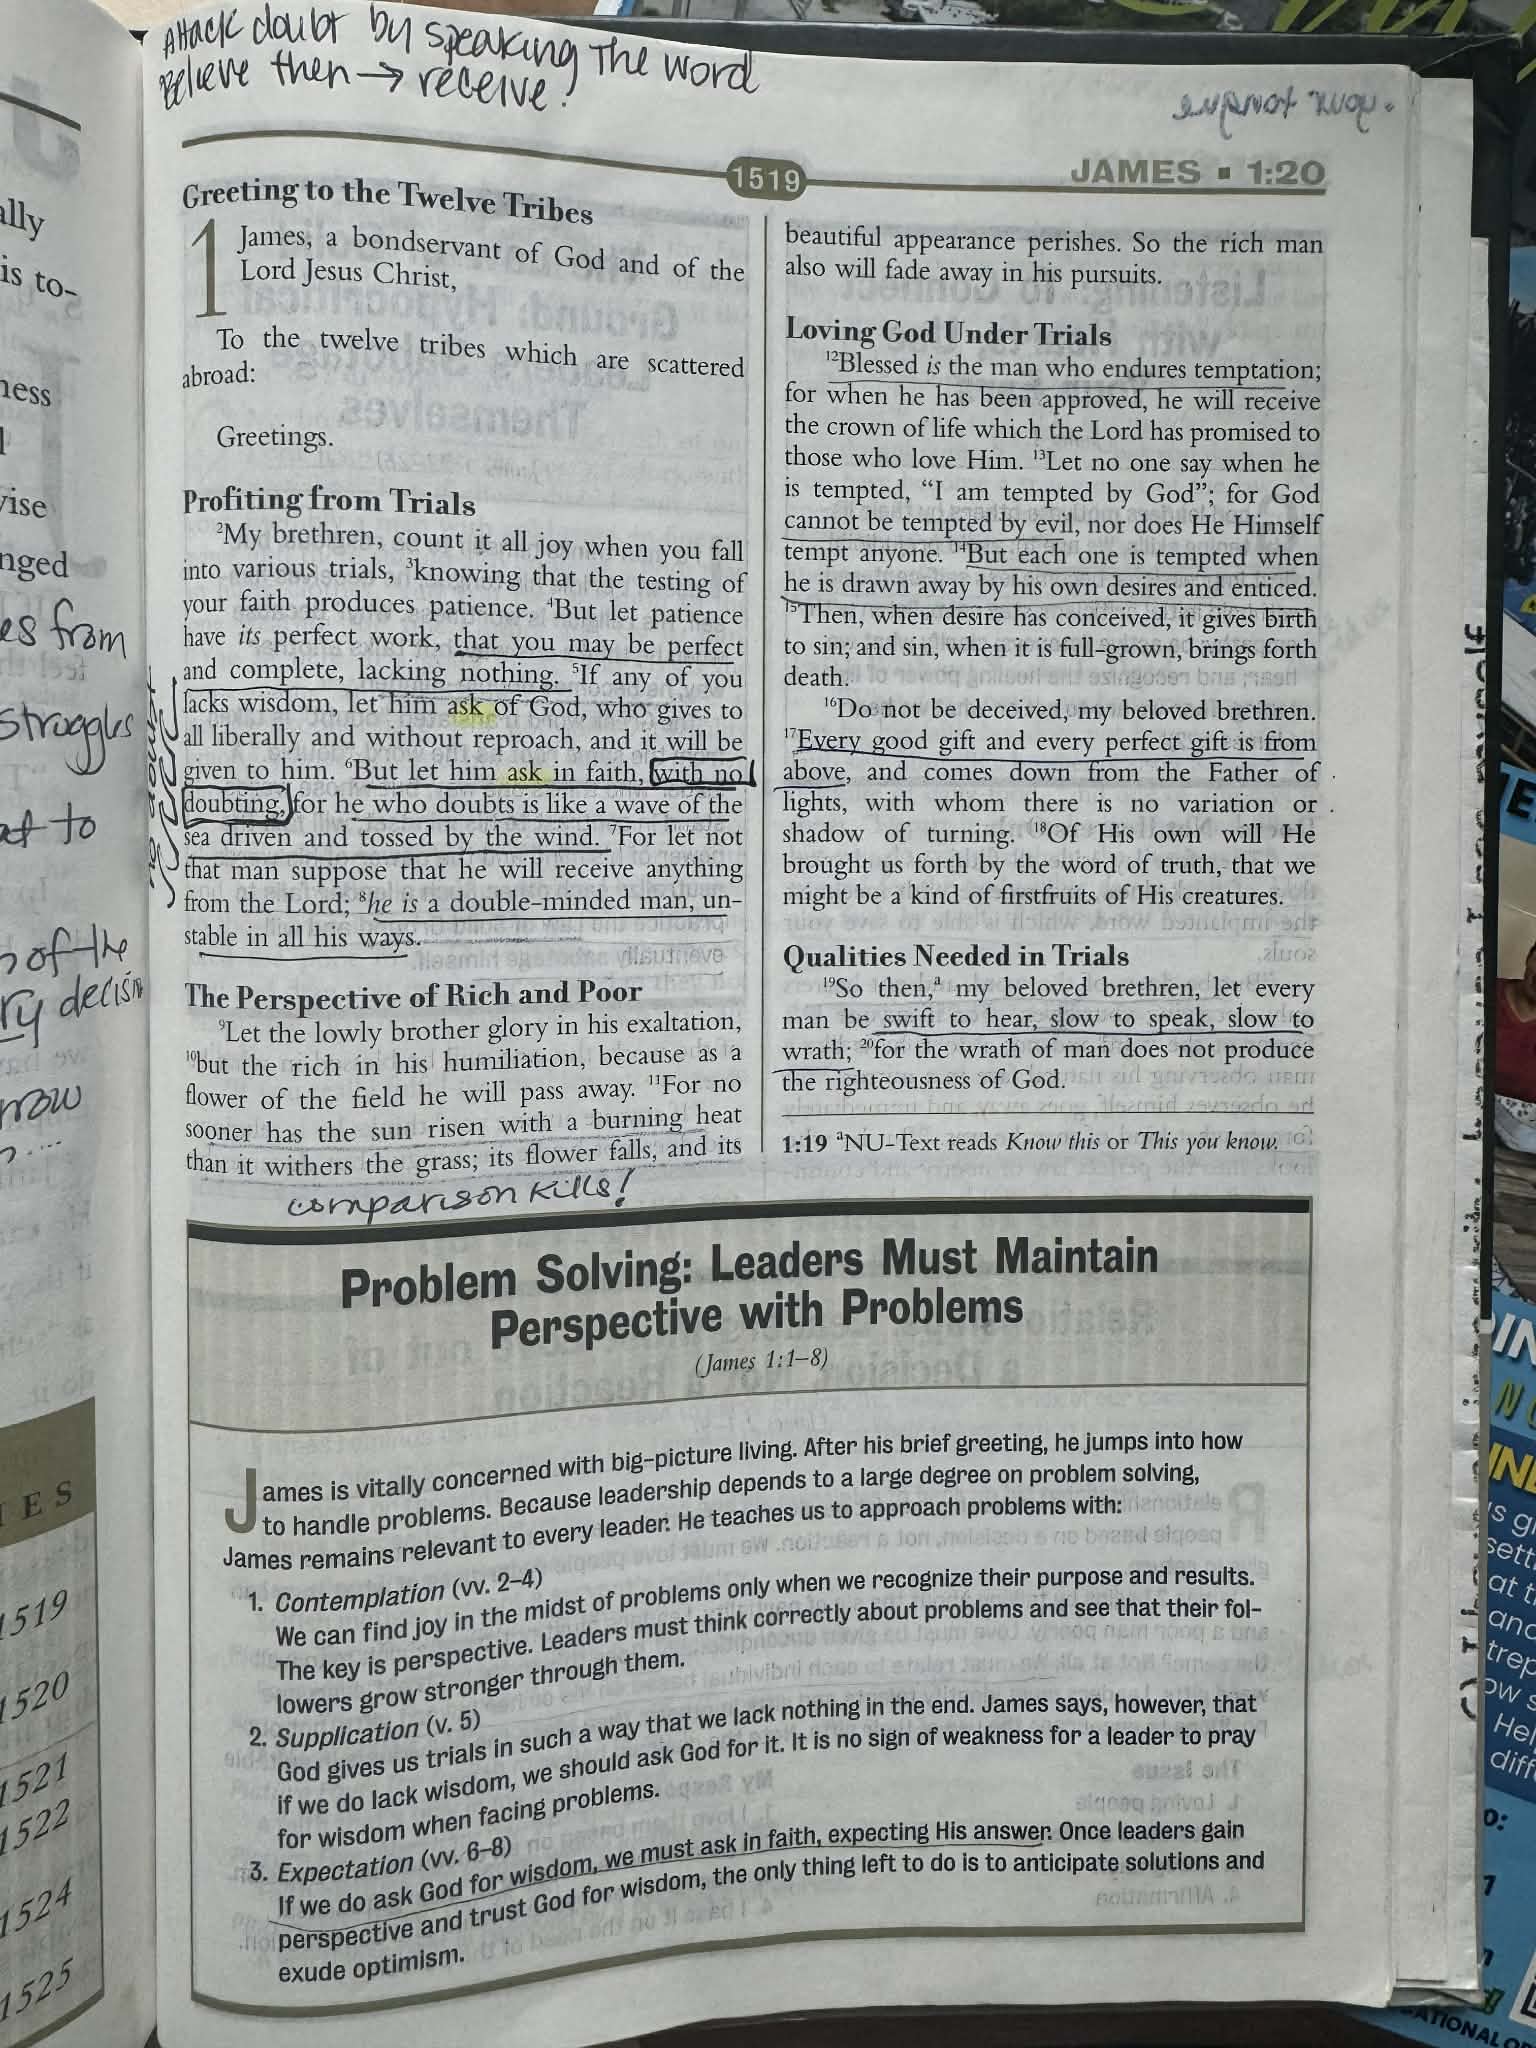 Attack doubt by speaking The word
Believe then → receive!
1519
JAMES ▪ 1:20
Greeting to the Twelve Tribes
1 James, a bondservant of God and of the
Lord Jesus Christ,
To the twelve tribes which are scattered
abroad:
Greetings.
Profiting from Trials
²My brethren, count it all joy when you fall
into various trials, ³knowing that the testing of
your faith produces patience. ⁴But let patience
have its perfect work, that you may be perfect
and complete, lacking nothing. ⁵If any of you
lacks wisdom, let him ask of God, who gives to
all liberally and without reproach, and it will be
given to him. ⁶But let him ask in faith, with no
doubting, for he who doubts is like a wave of the
sea driven and tossed by the wind. ⁷For let not
that man suppose that he will receive anything
from the Lord; ⁸he is a double-minded man, un-
stable in all his ways.
no doubt
The Perspective of Rich and Poor
⁹Let the lowly brother glory in his exaltation,
¹⁰but the rich in his humiliation, because as a
flower of the field he will pass away. ¹¹For no
sooner has the sun risen with a burning heat
than it withers the grass; its flower falls, and its
comparison kills!
beautiful appearance perishes. So the rich man
also will fade away in his pursuits.
Loving God Under Trials
¹²Blessed is the man who endures temptation;
for when he has been approved, he will receive
the crown of life which the Lord has promised to
those who love Him. ¹³Let no one say when he
is tempted, “I am tempted by God”; for God
cannot be tempted by evil, nor does He Himself
tempt anyone. ¹⁴But each one is tempted when
he is drawn away by his own desires and enticed.
¹⁵Then, when desire has conceived, it gives birth
to sin; and sin, when it is full-grown, brings forth
death.
¹⁶Do not be deceived, my beloved brethren.
¹⁷Every good gift and every perfect gift is from
above, and comes down from the Father of
lights, with whom there is no variation or
shadow of turning. ¹⁸Of His own will He
brought us forth by the word of truth, that we
might be a kind of firstfruits of His creatures.
Qualities Needed in Trials
¹⁹So then,ᵃ my beloved brethren, let every
man be swift to hear, slow to speak, slow to
wrath; ²⁰for the wrath of man does not produce
the righteousness of God.
1:19 ᵃNU-Text reads Know this or This you know.
Problem Solving: Leaders Must Maintain
Perspective with Problems
(James 1:1–8)
James is vitally concerned with big-picture living. After his brief greeting, he jumps into how
to handle problems. Because leadership depends to a large degree on problem solving,
James remains relevant to every leader. He teaches us to approach problems with:
1. Contemplation (vv. 2–4)
We can find joy in the midst of problems only when we recognize their purpose and results.
The key is perspective. Leaders must think correctly about problems and see that their fol-
lowers grow stronger through them.
2. Supplication (v. 5)
God gives us trials in such a way that we lack nothing in the end. James says, however, that
if we do lack wisdom, we should ask God for it. It is no sign of weakness for a leader to pray
for wisdom when facing problems.
3. Expectation (vv. 6–8)
If we do ask God for wisdom, we must ask in faith, expecting His answer. Once leaders gain
perspective and trust God for wisdom, the only thing left to do is to anticipate solutions and
exude optimism.
ally
is to-
ness
es from
struggles
at to
of the
ry decision
1519
1520
1521
1522
1524
1525